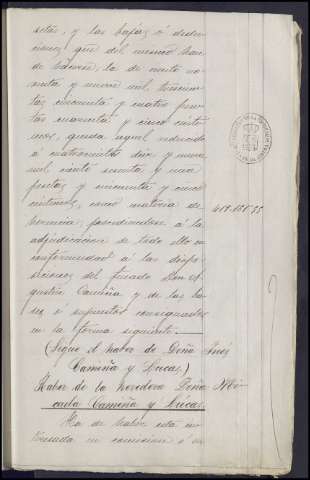 setas, y las bajas ó deduc-
ciones que del mismo han
de hacerse, la de ciento no-
venta y nueve mil, trescien-
tas cincuenta y cuatro pese-
tas cuarenta y cinco cénti-
mos, queda aquel reducido
á cuatrocientas diez y nueve
mil ciento sesenta y una
pesetas y cincuenta y cinco
céntimos, como materia de
herencia, procediéndose á la
adjudicación de todo ello en
conformidad á las dispo-
siciones del finado Don A-
gustín Camiña y de las ba-
ses ó supuestos consignados
en la forma siguiente.
(Sigue el haber de Doña Inés
Camiña y Lúcas.)
Haber de la heredera Doña
Camiña y Lúcas.
Ha de haber esta in-
teresada en comision ó en